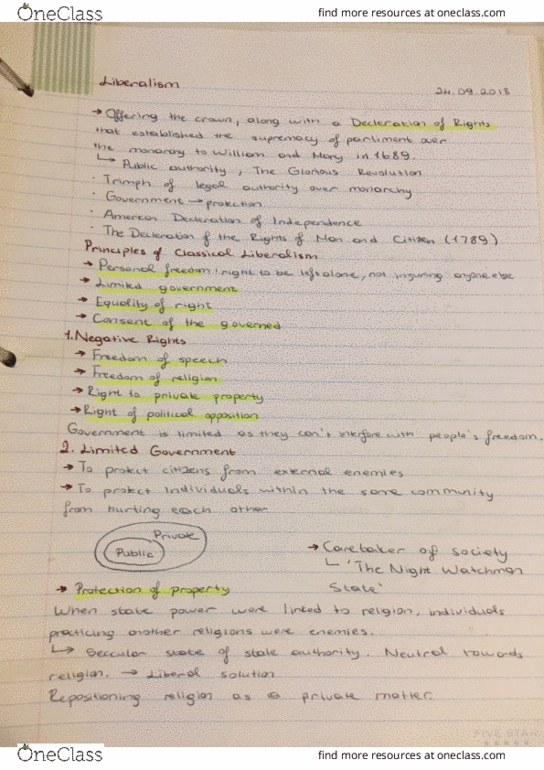 OneClass find more resources at oneclass.com
Liberalism
24.09.2013
→ Offering the crown, along with a Decleration of Rights
that established the supremacy of parliment over
the monarchy to William and Mary in 1689.
↳ Public authority, The Glorious Revolution
· Triumph of legal authority over monarchy
· Government → protection
· American Decleration of Independence
· The Decleration of the Rights of Man and Citizen (1789)
Principles of Classical Liberalism
→ Personal freedom: right to be left alone, not injuring anyone else
→ Limited government
→ Equality of right
→ Consent of the governed
1. Negative Rights
→ Freedom of speech
→ Freedom of religion
→ Right to private property
→ Right of political opposition
Government is limited as they can't interfere with people's freedom.
2. Limited Government
→ To protect citizens from external enemies
→ To protect individuals within the same community
from hurting each other
Private
Public
→ Caretaker of society
↳ 'The Night Watchman
State'
→ Protection of property
When state power were linked to religion, individuals
practicing another religions were enemies.
↳ Seccular state of state authority. Neutral towards
religion. → Liberal solution
Repositioning religion as a private matter.
FIVE STAR
OneClass find more resources at oneclass.com